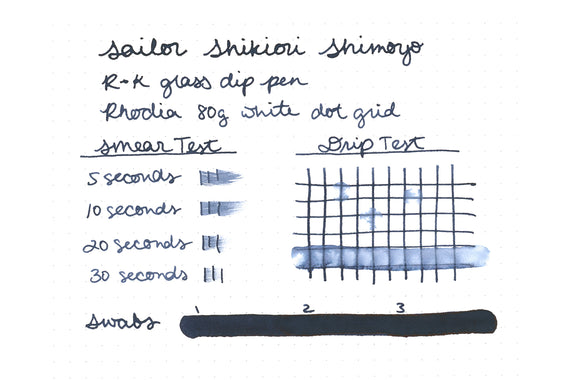 Sailor Shikiori Shimoyo
R-K glass dip pen
Rhodia 80g white dot grid
Smear Test
5 seconds
10 seconds
20 seconds
30 seconds
Drip Test
Swabs 1 2 3